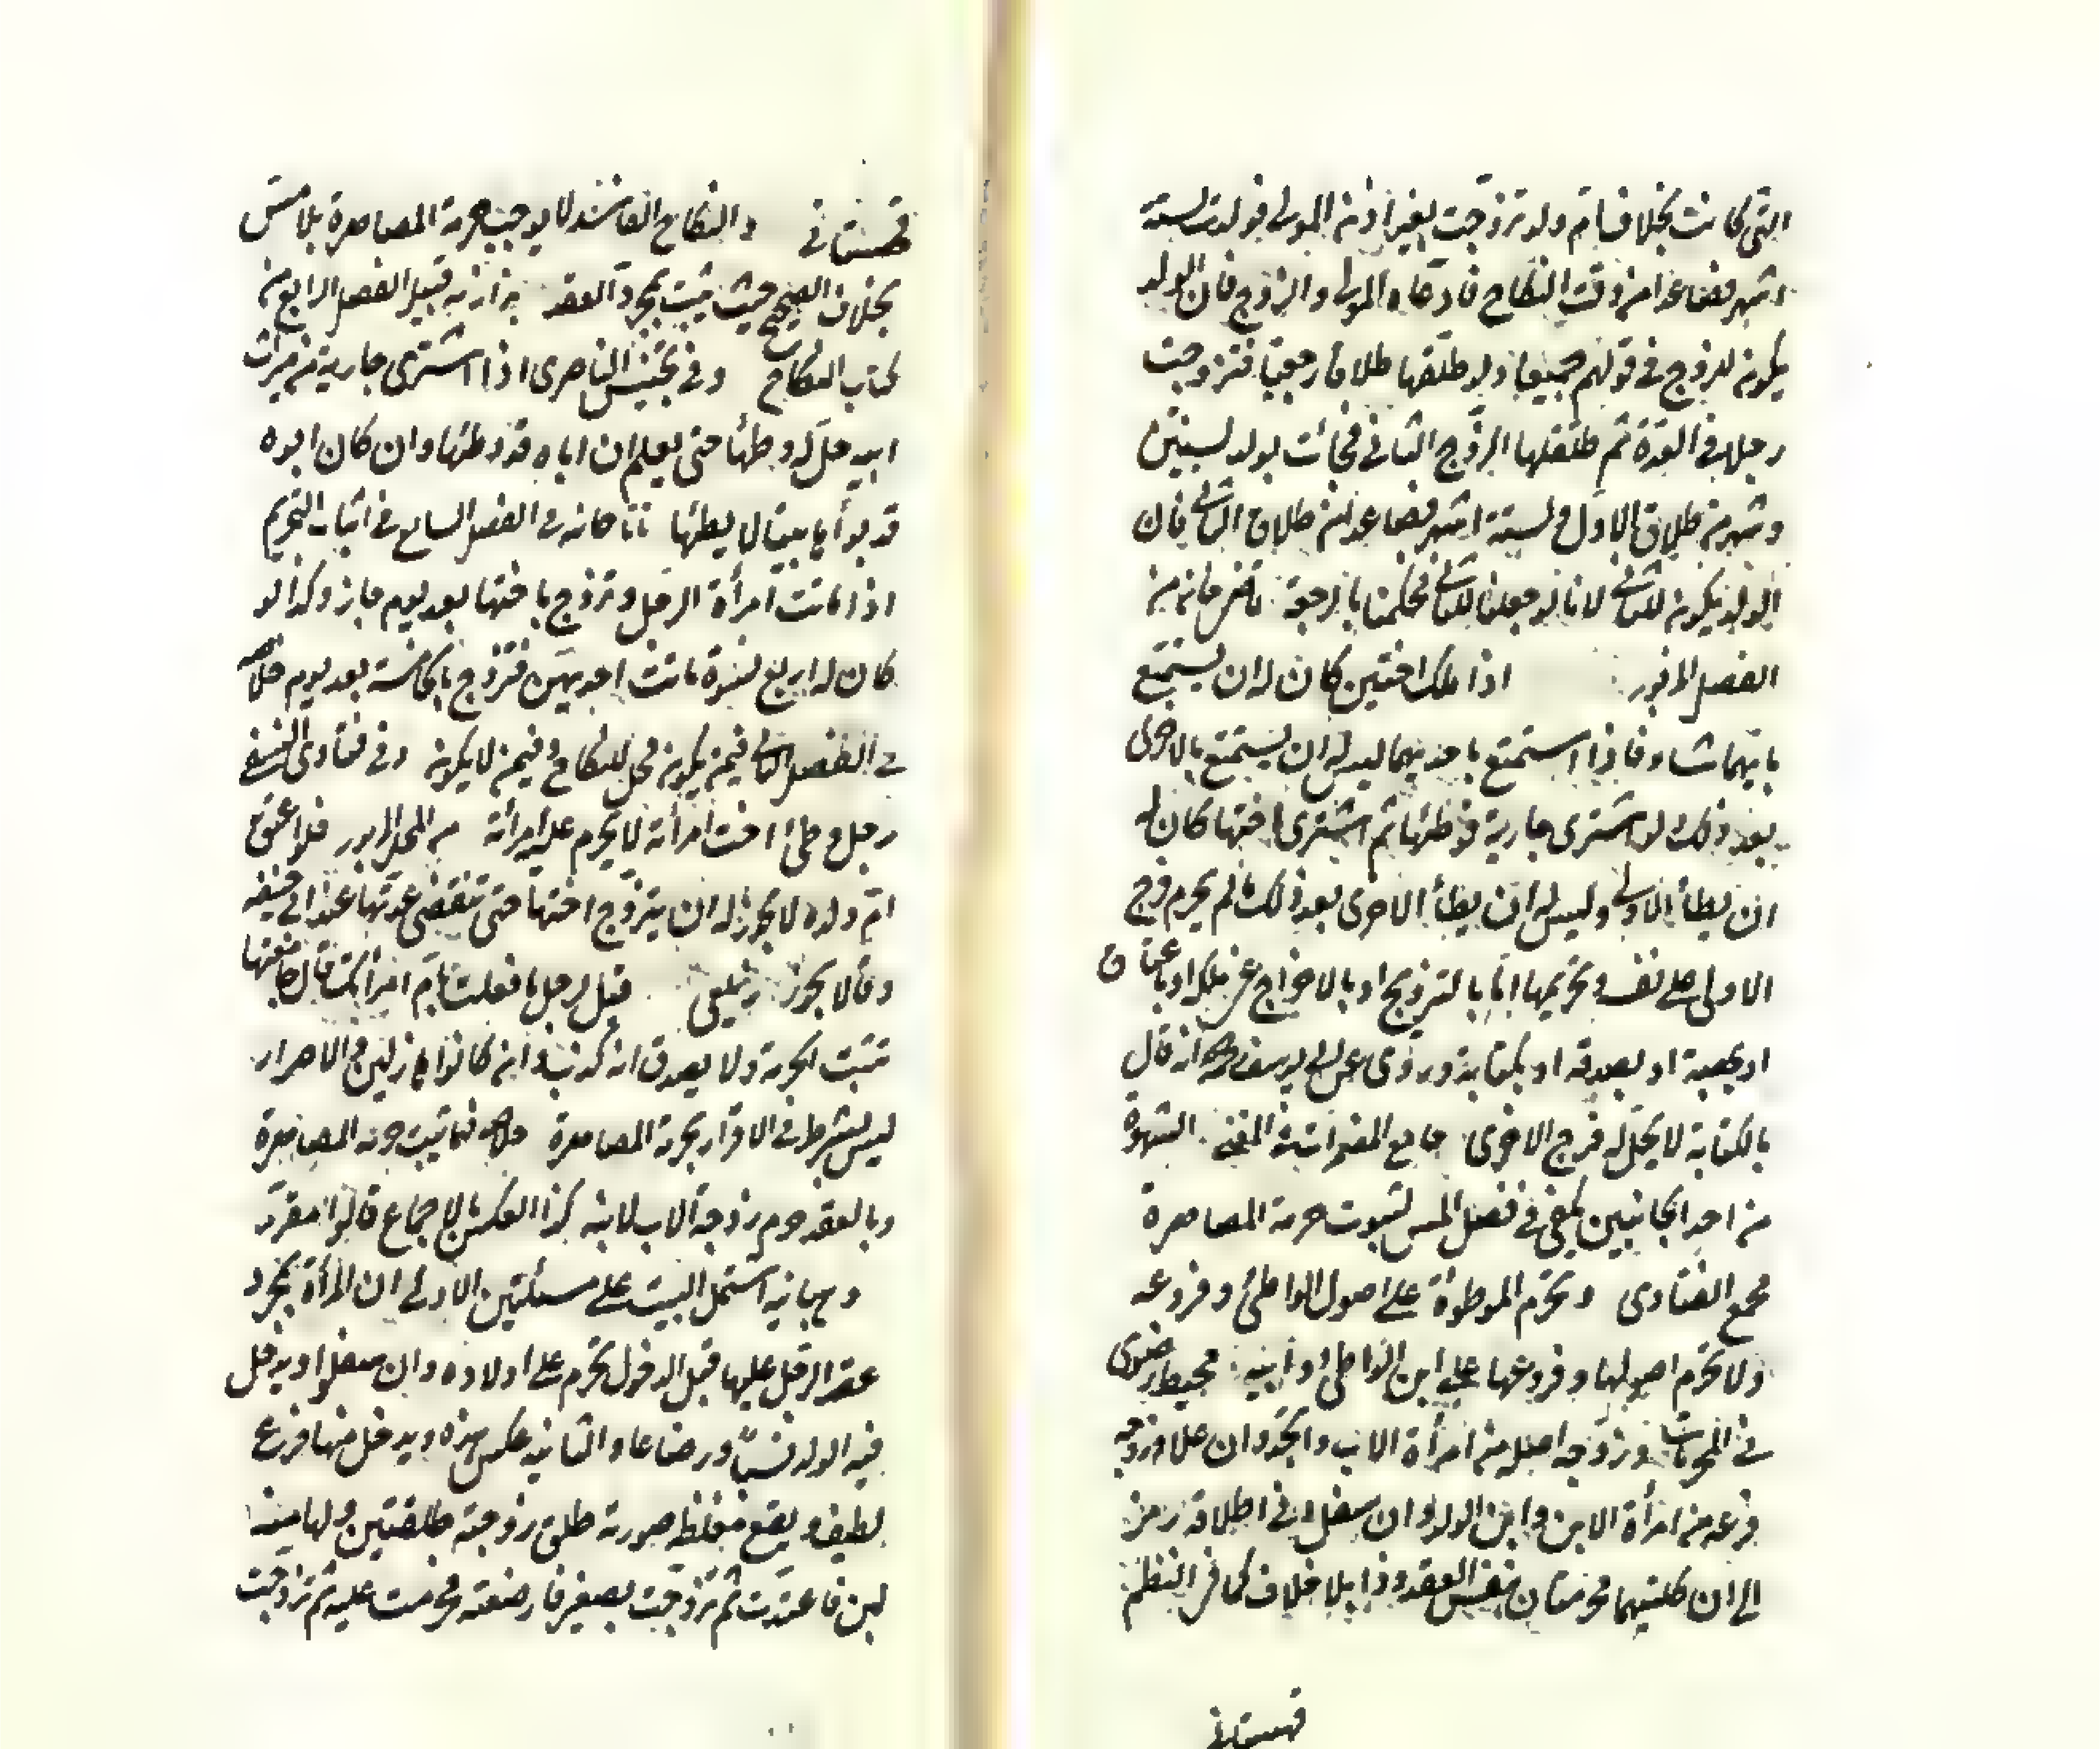 التى كانت بخلاف ام ولد تزوجت بغير اذن المولى فولدت لستة
اشهر فصاعدا من وقت النكاح فادعاه المولى والزوج فان الولد
يكون للزوج فى قولهم جميعا ولو طلقها طلاقا رجعيا فتزوجت
رجلا فى العدة ثم طلقها الزوج الثانى فجائت بولد لسنتين
وشهر من طلاق الاول و لستة اشهر فصاعدا من طلاق الثانى فان
الولد يكون للثانى لانا لو جعلنا للثانى فحكمنا بالرجعة قاضيخان من
الفصل المزبور اذا ملك اختين كان له ان يستمتع
بايتهما شاء فاذا استمتع باحديهما ليس له ان يستمتع بالاخرى
بعد ذلك لو اشترى جارية فوطئها ثم اشترى اختها كان له
ان يطأ الاولى وليس له ان يطأ الاخرى بعد ذلك ما لم يحرم فرج
الاولى على نفسه وتحريمها اما بالتزويج او بالاخراج عن ملكه او باعتاق
او بهبة او بصدقة او بكتابة وروى عن ابى يوسف انه قال
بالكتابة لا يحل له فرج الاخرى الشهوة
من احد الجانبين يكفى فى فصل المس لثبوت حرمة المصاهرة
مجمع الفتاوى وتحرم الموطوءة على اصول الواطئ وفروعه
ولا تحرم اصولها وفروعها على ابن الواطئ وابيه محيط رضوى
فى المحرمات وزوجة اصله من امرأة الاب والجد وان علا وزوجة
فرعه من امرأة الابن وابن الولد وان سفل وفى اطلاقه رمز
الى ان كلتيهما محرمتان بنفس العقد وذا بلا خلاف كما فى النظم
قهستانى
قهستانى والنكاح الفاسد لا يوجب حرمة المصاهرة بلا مس
بخلاف الصحيح حيث يثبت بمجرد العقد بزازيه قبيل الفصل الرابع من
كتاب النكاح وفى تجنيس الناصرى اذا اشترى جارية من ميراث
ابيه حل له وطئها حتى يعلم ان اباه قد وطئها وان كان ابوه
قد بوأها بيتا لا يطئها تاتارخانيه فى الفصل السابع فى اثبات التحريم
اذا ماتت امرأة الرجل وتزوج باختها بعد يوم جاز وكذا لو
كان له اربع نسوة ماتت احديهن فتزوج بالخامسة بعد يوم خلاصه
فى الفصل الثانى فيمن يكون محل للنكاح وفيمن لا يكون وفى فتاوى النسفى
رجل وطئ اخت امرأته لا تحرم عليه امرأته من المحل المزبور فلو اعتق
ام ولده لا يجوز له ان يتزوج اختها حتى تنقضى عدتها عند ابى حنيفه
وقالا يجوز زيلعى قيل لرجل ما فعلت بام امرأتك قال جامعتها
تثبت الحرمة ولا يصدق انه كذب وان كانوا هازلين والاصرار
ليس بشرط فى الاقرار بحرمة المصاهرة خلاصه فيما تثبت حرمة المصاهرة
وبالعقد حرم زوجة الاب لابنه كذا العكس بالاجماع قالوا مقرر
وهبانيه اشتمل البيت على مسئلتين الاولى ان المرأة بمجرد
عقد الرجل عليها قبل الدخول تحرم على اولاده وان سفلوا ويدخل
فيه الولد نسبا ورضاعا والثانيه عكس هذه ويدخل منها فرع
لطيف و صورته طلق زوجته طلقتين ولها منه
لبن فاعتدت ثم تزوجت بصغير فارضعته فحرمت عليه ثم تزوجت